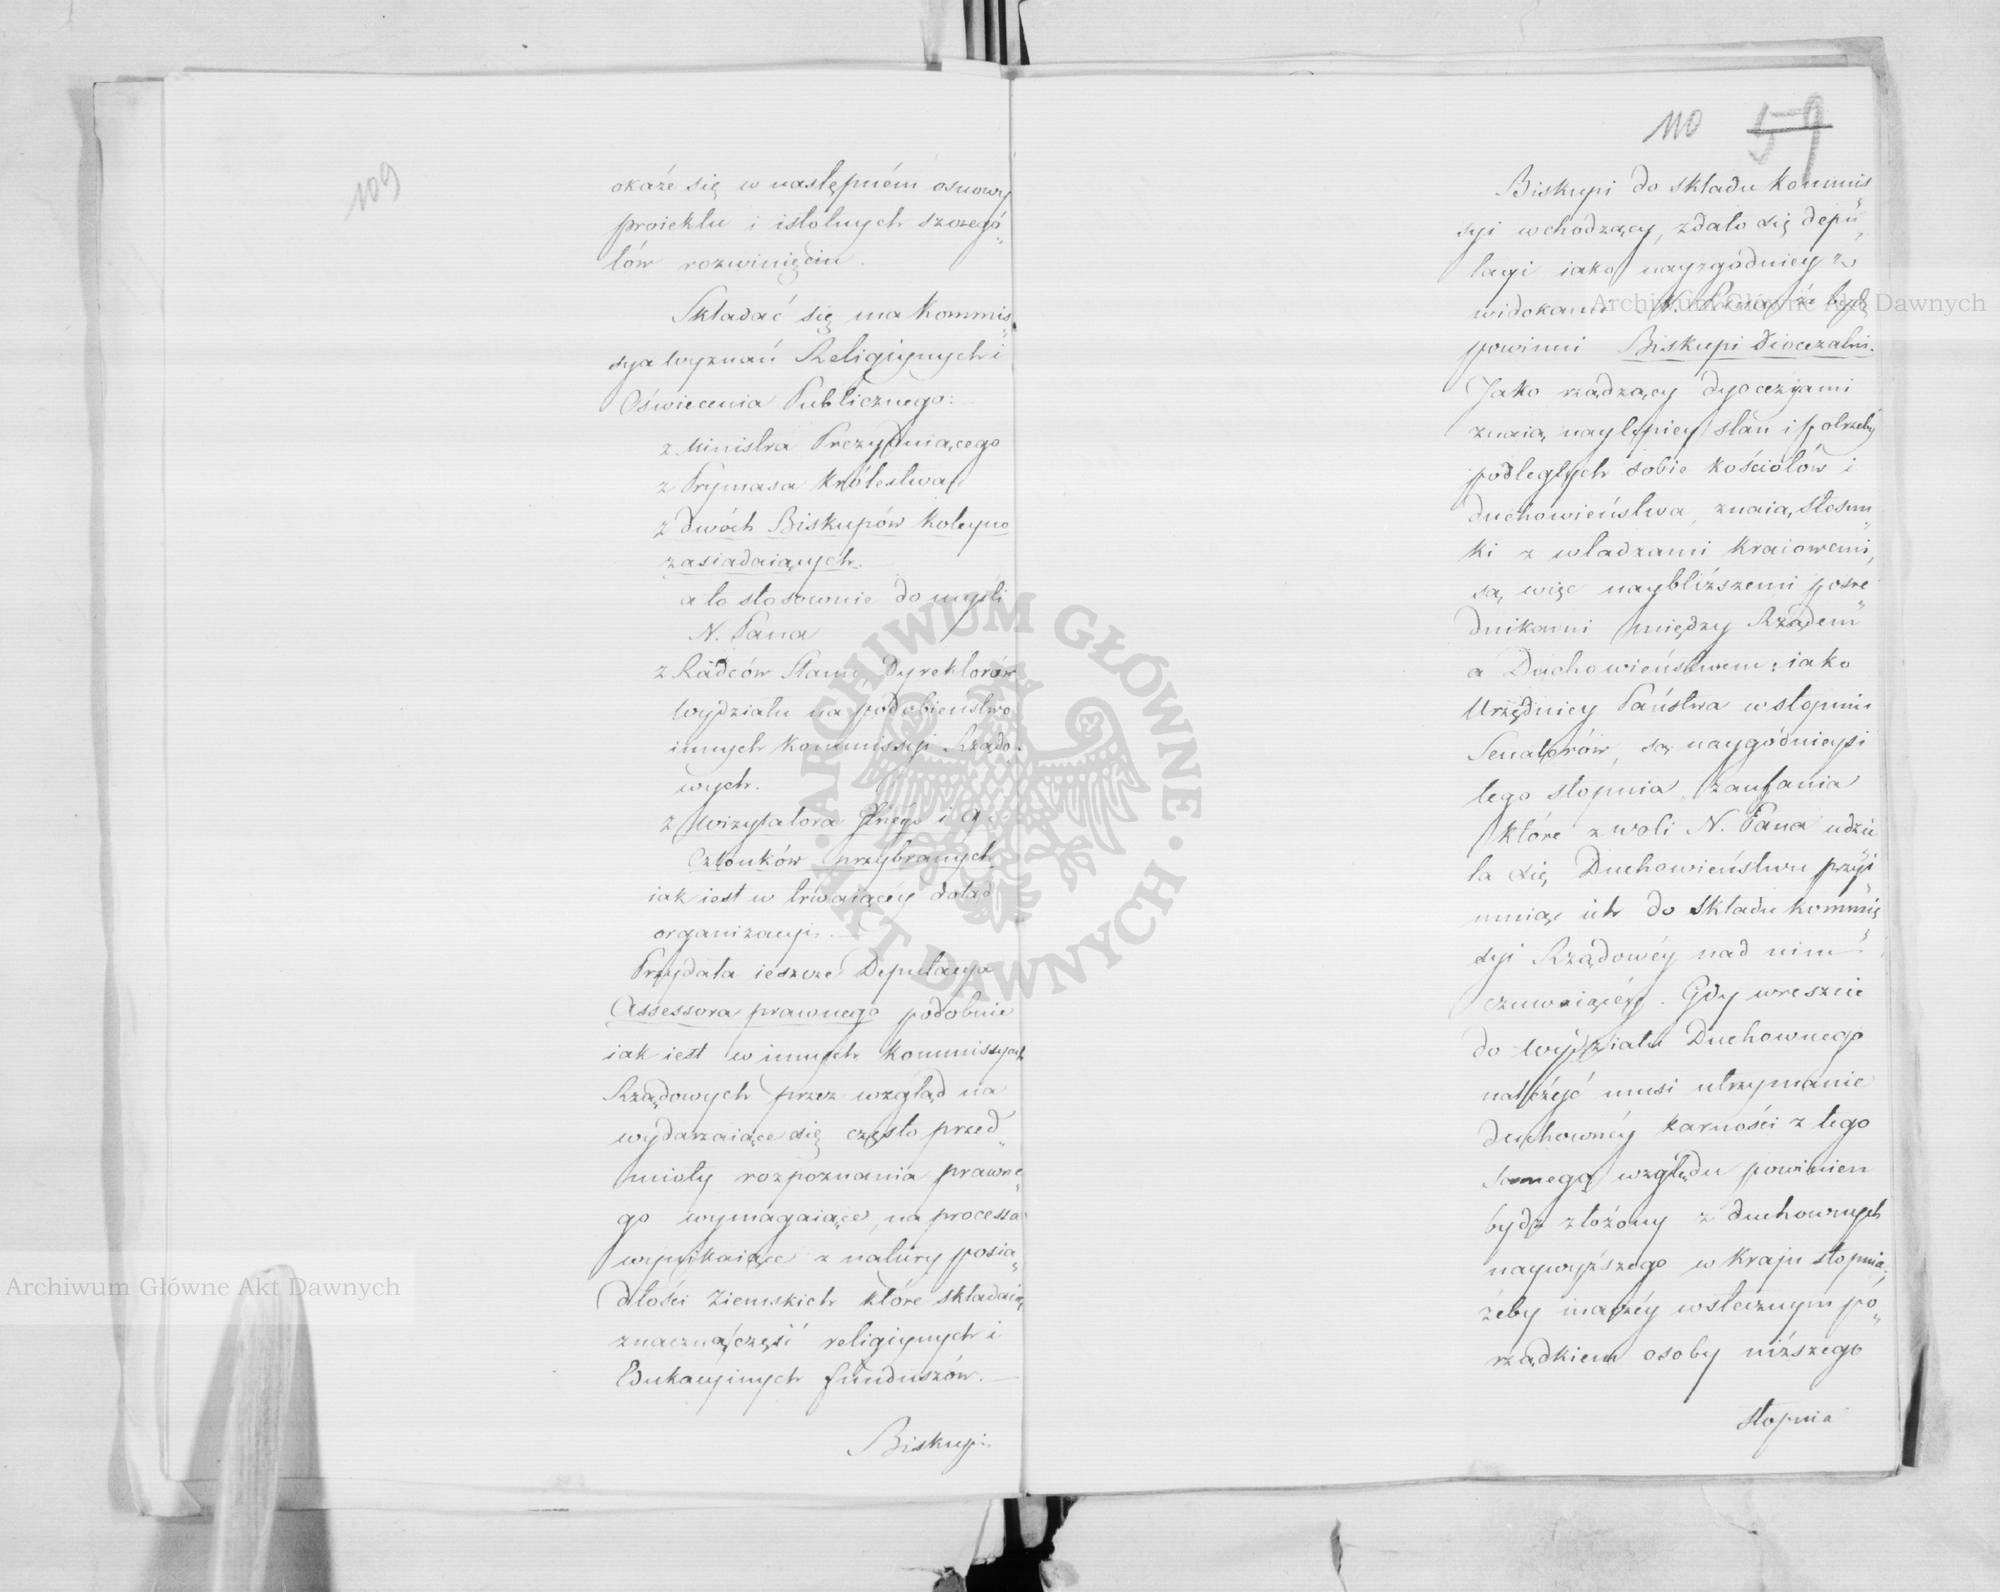 109
okaże się w następném osnowy
proiektu i istotnych szczegó„
łów rozwinięciu.
Składać się ma Kommis„
sya Wyznań Religiynych i
Oświecenia Publicznego:
z Ministra Prezyduiącego
z Prymasa Królestwa
z dwóch Biskupów koleyno
zasiadaiących.
a to stosownie do myśli
N. Pana
z Radców Stanu, Dyrektorów
Wydziału na podobieństwo
innych Kommissyi Rządo„
wych.
z Wizytatora Głnégo i
Członków przybranych
iak iest w trwaiącéy dotąd
organizacyi.
Przydała ieszcze Deputacya
Assessora prawnego podobnie
iak iest w innych Kommissyach
Rządowych przez wzgląd na
wydarzaiące się często przed„
mioty rozpoznania prawne„
go wymagaiące, na processa
wynikaiące z natury posia„
dłości ziemskich które składaią
znaczną część religiynych i
Edukacyinych funduszów.
Biskupi
110 59
Biskupi do składu Kommis„
syi wchodzący, zdało się depu„
tacyi iako nayzgodniey z
widokami N. Pana, że być
powinni Biskupi Diecezalni.
Jako rządzący dyocezyami
znaią naylepiey stan i potrzeby
podległych sobie kościołów i
duchowieństwa, znaią stosun„
ki z władzami kraiowemi,
są więc naybliższemi pośre„
dnikami między Rządem
a Duchowieństwem; iako
Urzędnicy Państwa w stopniu
Senatorów, są naygodnieysi
tego stopnia zaufania
które z woli N. Pana udzie„
la się Duchowieństwu przyi„
muiąc ich do składu Kommis„
syi Rządowéy nad nim
czuwaiącéy. Gdy wreszcie
do Wydziału Duchownego
należeć musi utrzymanie
duchownéy karności z tego
samego względu powinien
bydź złożony z duchownych
naywyższego w kraju stopnia,
żeby inaczéy wstecznym po„
rządkiem osoby niższego
stopnia
Archiwum Główne Akt Dawnych
Archiwum Główne Akt Dawnych
ARCHIWUM GŁÓWNE · AKT DAWNYCH ·